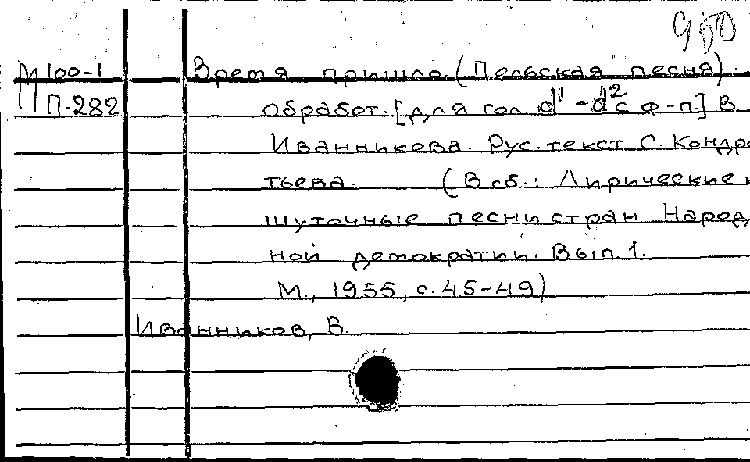 М 100-1 Время пришло. (Польская песня).
П-282 обработ. [для гол. d¹-d² с ф-п] В.
Иванникова. Рус. текст С. Кондра
тьева. (В сб.: Лирические и
шуточные песни стран Народ
ной демократии. Вып. 1.
М., 1955, с. 45-49)
Иванников, В.